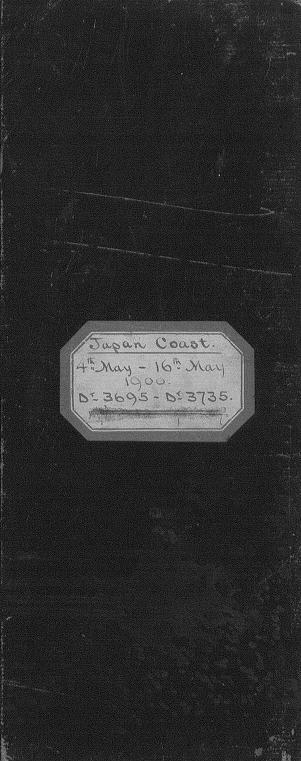 Japan Coast.
4th May - 16th May
1900.
Dr. 3695 - Dr. 3735.